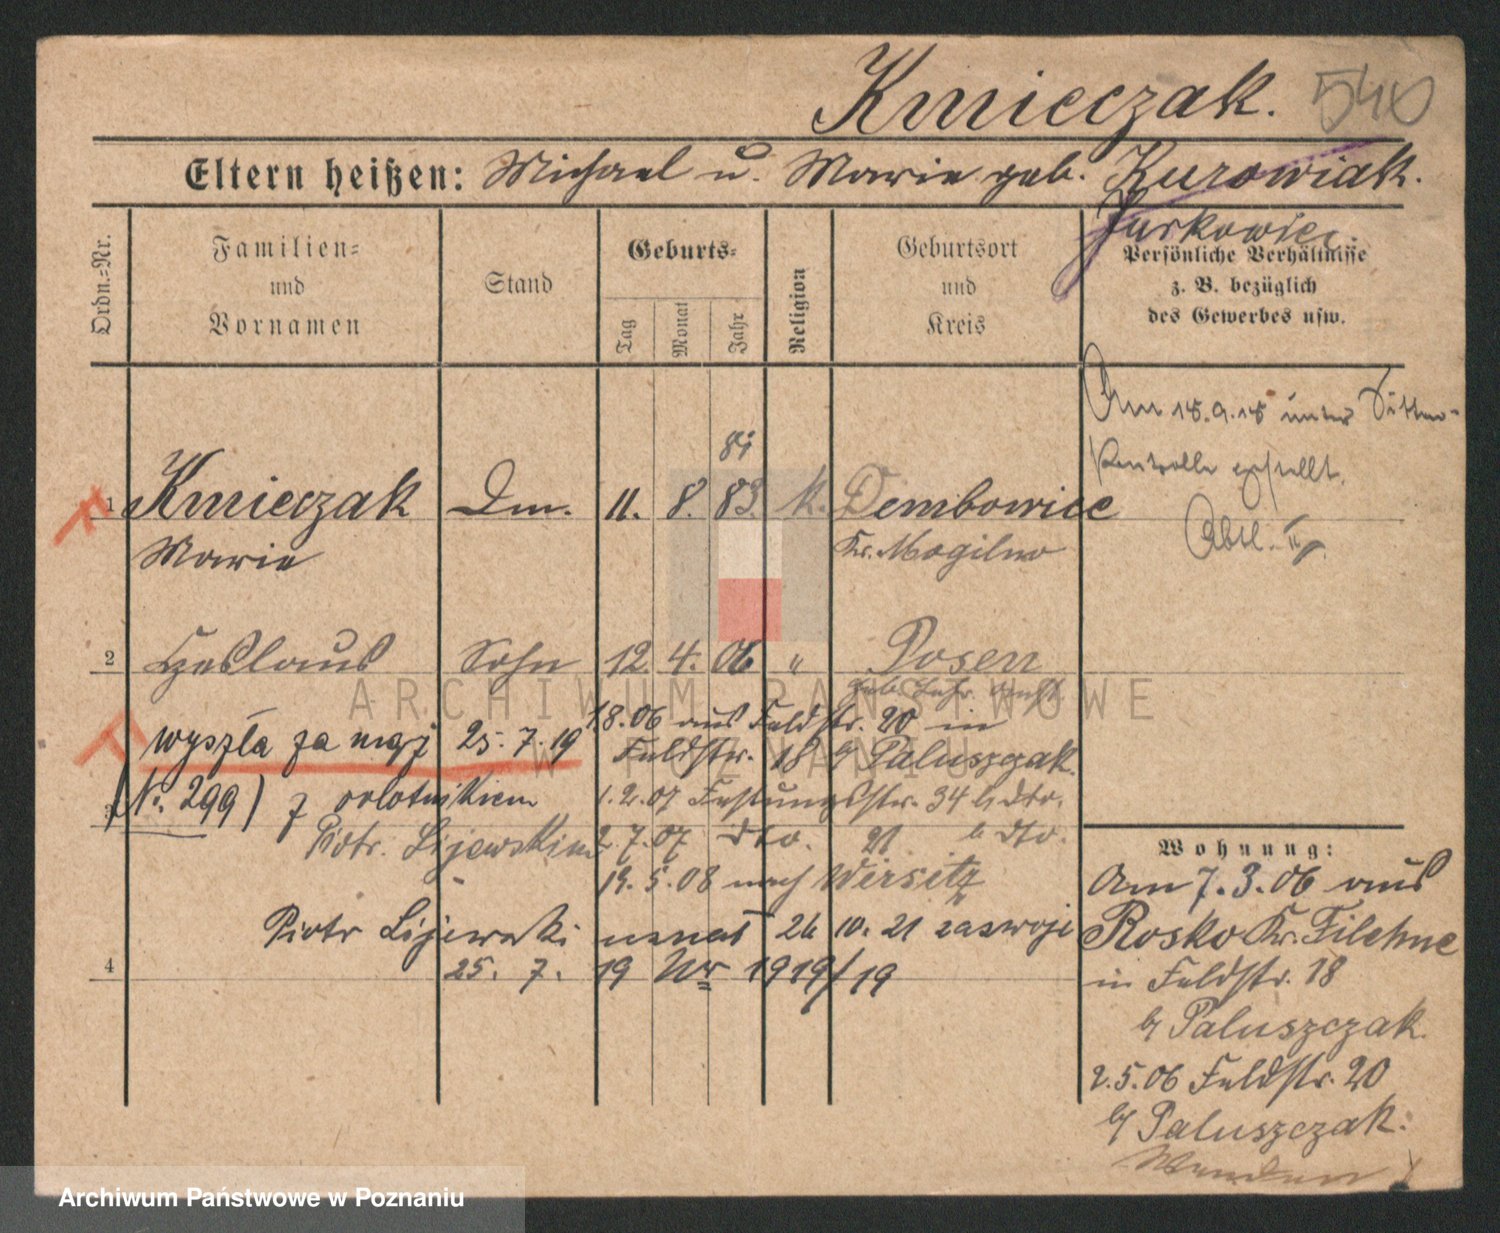 Kmieczak. 540
Eltern heißen: Michael u. Marie geb. Kurowiak.
Jurkowiec.
Ordn.=Nr.
Familien=
und
Vornamen
Stand
Geburts=
Tag
Monat
Jahr
Religion
Geburtsort
und
Kreis
Persönliche Verhältnisse
z. B. bezüglich
des Gewerbes usw.
Am 15.9.15 unter Sitten-
kontrolle gestellt.
Abtl. II
81
1 Kmieczak Dm. 11. 8. 83. k. Dembowiec
Marie Kr. Mogilno
2 Czeslaus Sohn 12. 4. 06 " Posen
1.8.06 aus Feldstr. 20 in
wyszła za mąż 25.7.19 Feldstr. 18 b/ Paluszczak.
(Nr. 299) z robotnikiem 1.2.07 Festungsstr. 34 b. dto.
3
Piotr. Lijewskim 2.7.07 dto. 21 b. dto.
19.5.08 nach Wirsitz
Piotr Lijewski uznał 26 10. 21 za swoje
4 25. 7. 19 Nr 1919/19
Wohnung:
Am 7.3.06 aus
Rosko Kr. Filehne
in Feldstr. 18
b/ Paluszczak.
2.5.06 Feldstr. 20
b/ Paluszczak.
Wenden
ARCHIWUM PAŃSTWOWE
W POZNANIU
Archiwum Państwowe w Poznaniu